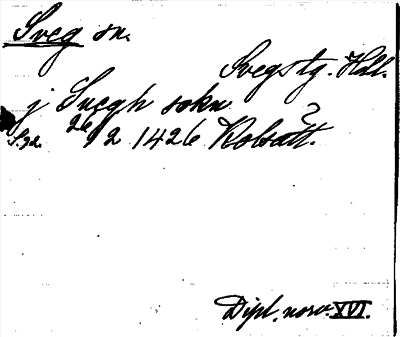 Sveg sn.
Svegs tg. Hdl.
j Suegh sokn
S. 32. 26/2 1426 Kolsätt.
Dipl. norv. XVI.